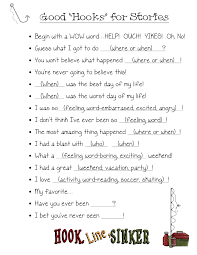 Good "Hooks" for Stories
Begin with a WOW word...HELP! OUCH! YIKES! Oh, No!
Guess what I got to do (where or when) ?
You won't believe what happened (where or when) !
You're never going to believe this!
(when) was the best day of my life!
(when) was the worst day of my life!
I was so (feeling word-embarrassed, excited, angry) !
I don't think I've ever been so (feeling word) !
The most amazing thing happened (where or when) !
I had a blast with (who) (when) !
What a (feeling word-boring, exciting) weekend!
I had a great (weekend, vacation, party) !
I love (activity word-reading, soccer, skating) !
My favorite...
Have you ever been ?
I bet you've never been !
HOOK, Line, SINKER